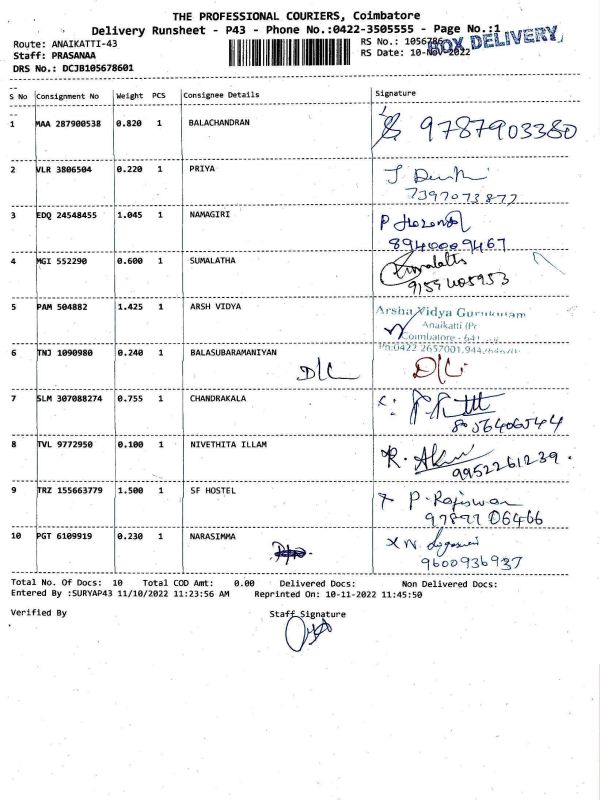 THE PROFESSIONAL COURIERS, Coimbatore
Delivery Runsheet - P43 - Phone No.:0422-3505555 - Page No.:1
Route: ANAIKATTI-43
RS No.: 1056786
BOX DELIVERY
Staff: PRASANAA
RS Date: 10-Nov-2022
DRS No.: DCJB105678601
S No Consignment No Weight PCS Consignee Details Signature
1 MAA 287900538 0.820 1 BALACHANDRAN 9787903380
2 VLR 3806504 0.220 1 PRIYA
7397073877
3 EDQ 24548455 1.045 1 NAMAGIRI P
8940009467
4 MGI 552290 0.600 1 SUMALATHA Sumalatha
9159405953
5 PAM 504882 1.425 1 ARSH VIDYA Arsha Vidya Gurukulam
Anaikatti (Po
Coimbatore - 641
Ph:0422 2657001,944
6 TNJ 1090980 0.240 1 BALASUBARAMANIYAN D/C D/C.
7 SLM 307088274 0.755 1 CHANDRAKALA
8056406544
8 TVL 9772950 0.100 1 NIVETHITA ILLAM R.
9952261239.
9 TRZ 155663779 1.500 1 SF HOSTEL x P. Rajiswari
06466
10 PGT 6109919 0.230 1 NARASIMMA x N
9600936937
Total No. Of Docs: 10 Total COD Amt: 0.00 Delivered Docs: Non Delivered Docs:
Entered By :SURYAP43 11/10/2022 11:23:56 AM Reprinted On: 10-11-2022 11:45:50
Verified By Staff Signature